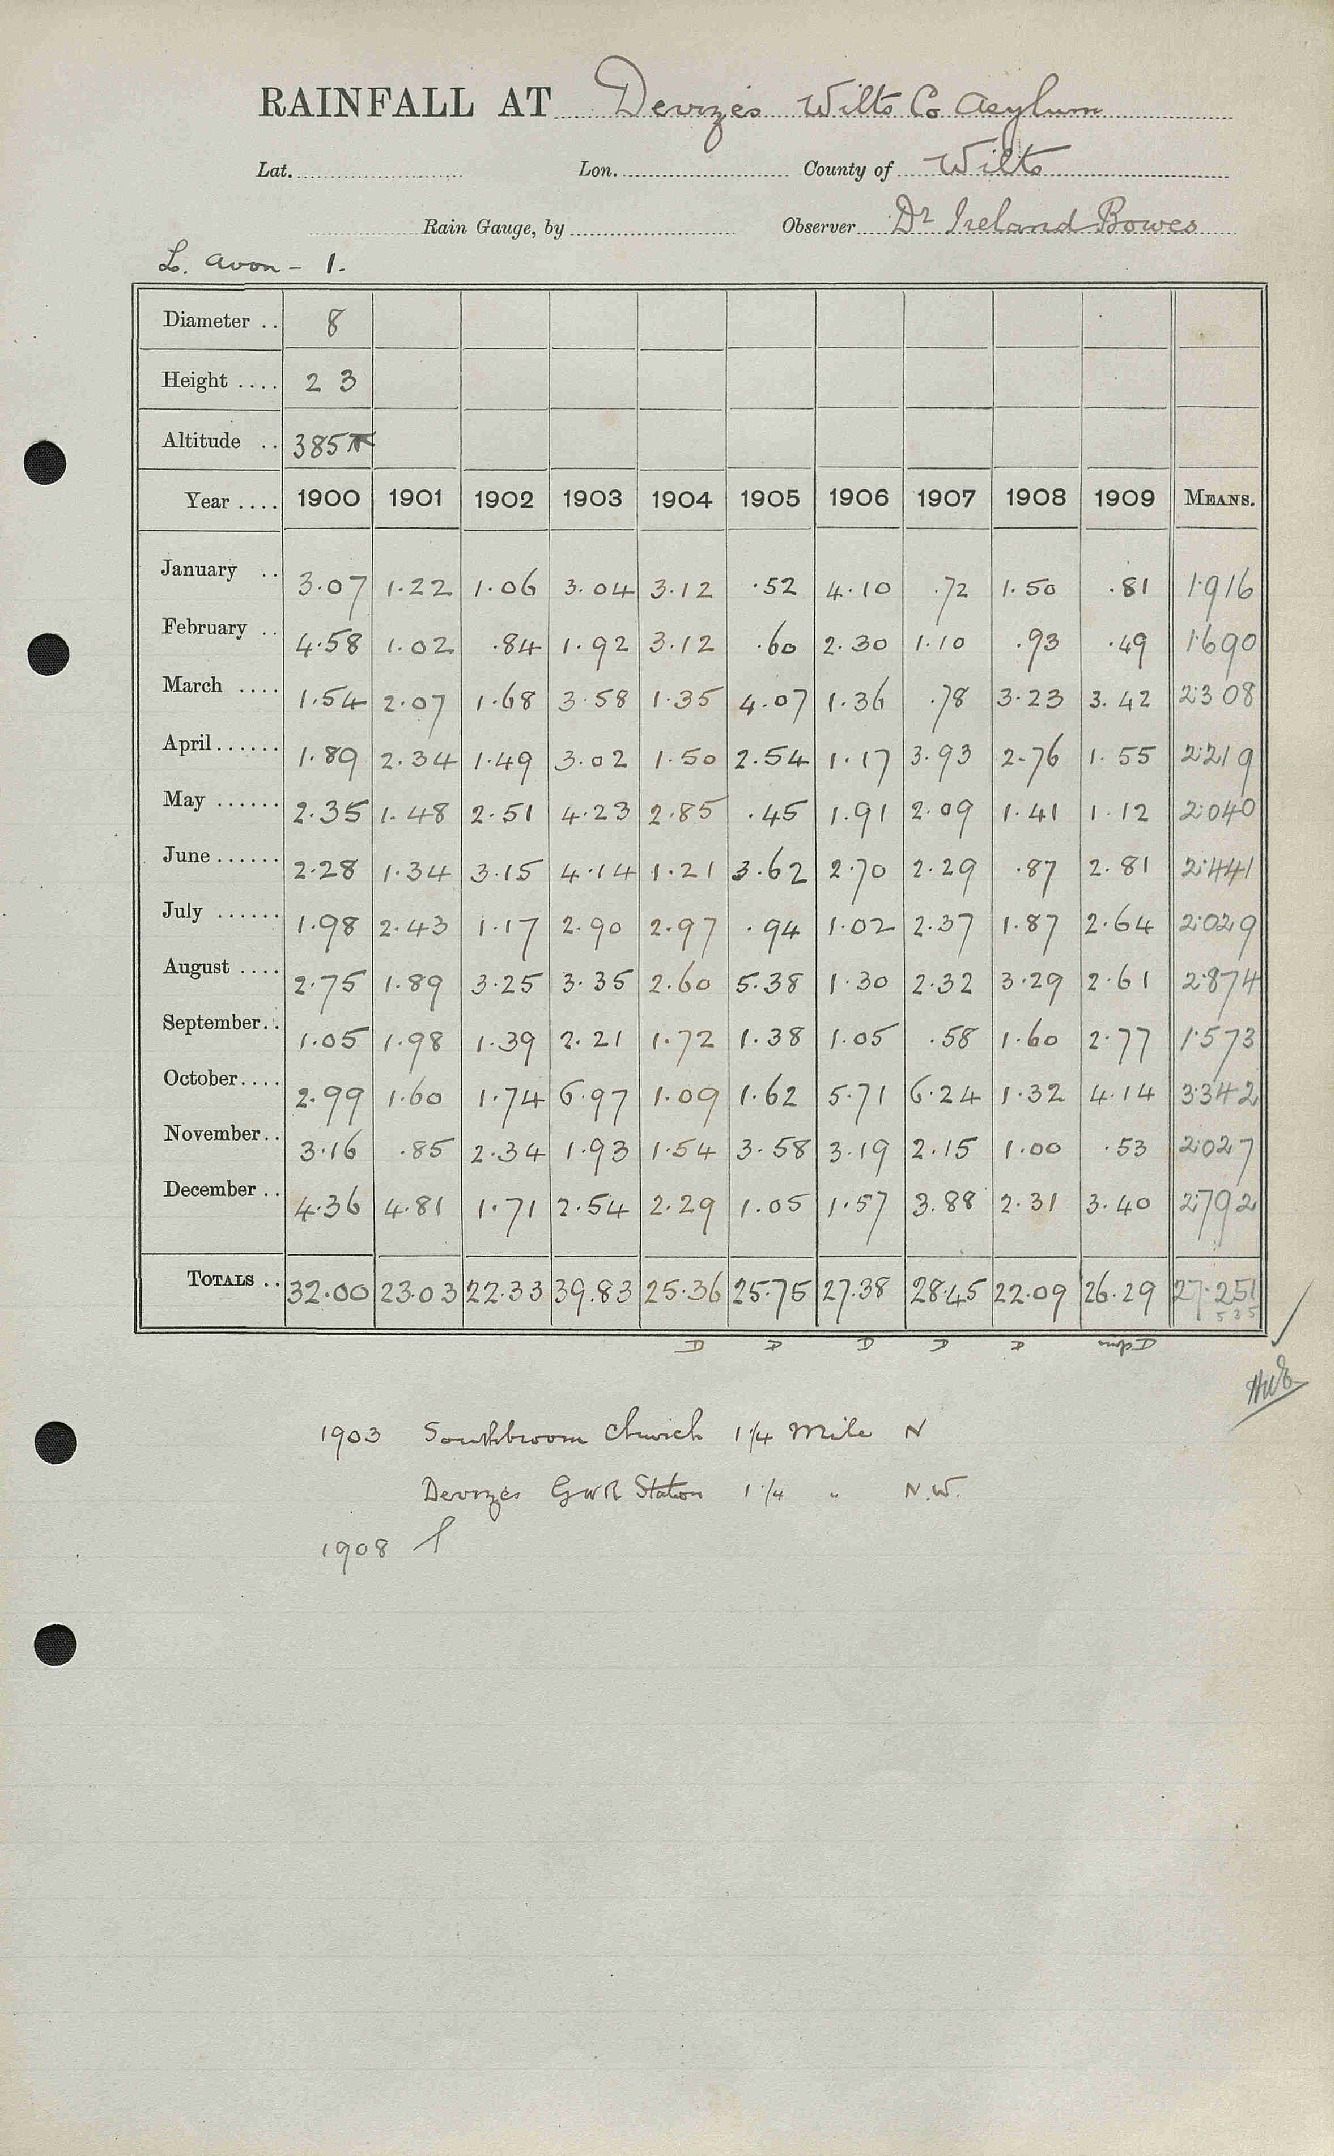 RAINFALL AT Devizes Wilts Co Asylum
Lat. Lon. County of Wilts
Rain Gauge, by Observer Dr Ireland Bowes
L. Avon - 1.
Diameter .. 8
Height .... 2 3
Altitude .. 385
Year .... 1900 1901 1902 1903 1904 1905 1906 1907 1908 1909 MEANS.
January .. 3.07 1.22 1.06 3.04 3.12 .52 4.10 .72 1.50 .81 1.916
February .. 4.58 1.02 .84 1.92 3.12 .60 2.30 1.10 .93 .49 1.690
March .... 1.54 2.07 1.68 3.58 1.35 4.07 1.36 .78 3.23 3.42 2.308
April...... 1.89 2.34 1.49 3.02 1.50 2.54 1.17 3.93 2.76 1.55 2.219
May ...... 2.35 1.48 2.51 4.23 2.85 .45 1.91 2.09 1.41 1.12 2.040
June ...... 2.28 1.34 3.15 4.14 1.21 3.62 2.70 2.29 .87 2.81 2.441
July ...... 1.98 2.43 1.17 2.90 2.97 .94 1.02 2.37 1.87 2.64 2.029
August .... 2.75 1.89 3.25 3.35 2.60 5.38 1.30 2.32 3.29 2.61 2.874
September.. 1.05 1.98 1.39 2.21 1.72 1.38 1.05 .58 1.60 2.77 1.573
October.... 2.99 1.60 1.74 6.97 1.09 1.62 5.71 6.24 1.32 4.14 3.342
November.. 3.16 .85 2.34 1.93 1.54 3.58 3.19 2.15 1.00 .53 2.027
December .. 4.36 4.81 1.71 2.54 2.29 1.05 1.57 3.88 2.31 3.40 2.792
TOTALS .. 32.00 23.03 22.33 39.83 25.36 25.75 27.38 28.45 22.09 26.29 27.251
535
D D D D D
1903 Southbroom Church 1 1/4 Mile N
Devizes GWR Station 1 1/4 " N.W.
1908